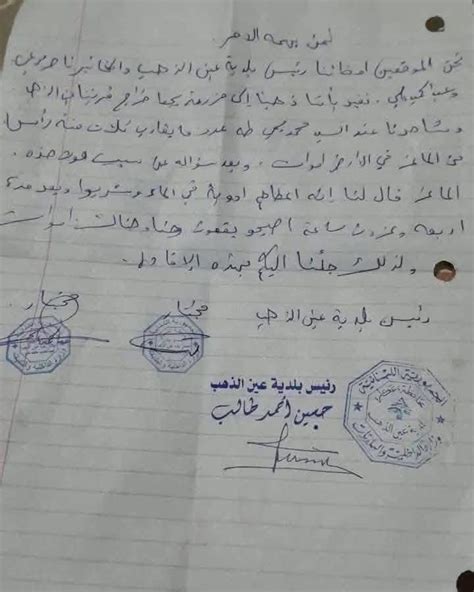 لمن يهمه الامر
نحن الموقعين ادناه رئيس بلدية عين الذهب والمختارين
نفيد بأننا ذهبنا إلى مزرعة خراج
وشاهدنا عند السيد محمد طه عدد ما يقارب ثلاث مئة رأس
من الماعز في الارض اموات . وبعد سؤاله عن سبب موت هذه
الماعز قال لنا إنه اعطاهم ادوية في الماء وشربوا وبعد مدة
اربعه وعشرون ساعة اصبحو يقعون هنا وهناك اموات
ولذلك جئنا اليكم بهذه الإفادة .
رئيس بلدية عين الذهب
مختار
مختار
رئيس بلدية عين الذهب
حسين أحمد طالب
الجمهورية اللبنانية
محافظة عكار
بلدية عين الذهب
وزارة الداخلية والبلديات